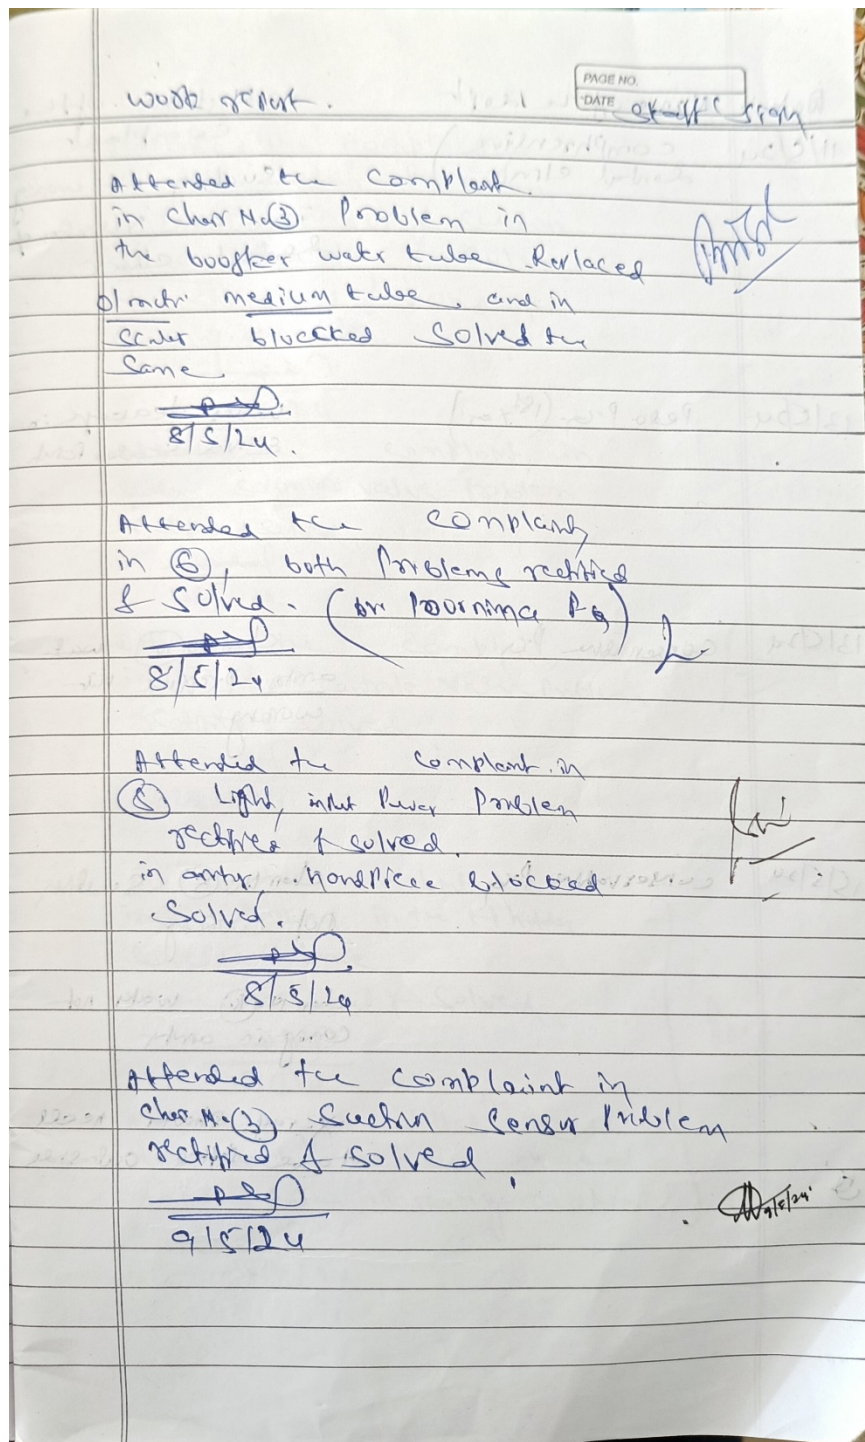 PAGE NO.
DATE
Work report. Staff sign
Attended the Complant
in Chair No. 3 Problem in
the boogter water tube. Replaced
01 metr medium tube, and in
Scaler blocked Solved the
Same
8/5/24.
Attended the complaint
in 6, both Problems rectified
& Solved. (Dr Poornima PG)
8/5/24
Attended the complent in
5 Light, inlet Power Problem
rectified & solved.
in airotor, Handpiece blocked
Solved.
8/5/24
Attended the complaint in
Chair No. 3 Suction Sensor Problem
rectified & solved.
9/5/24
9/5/24